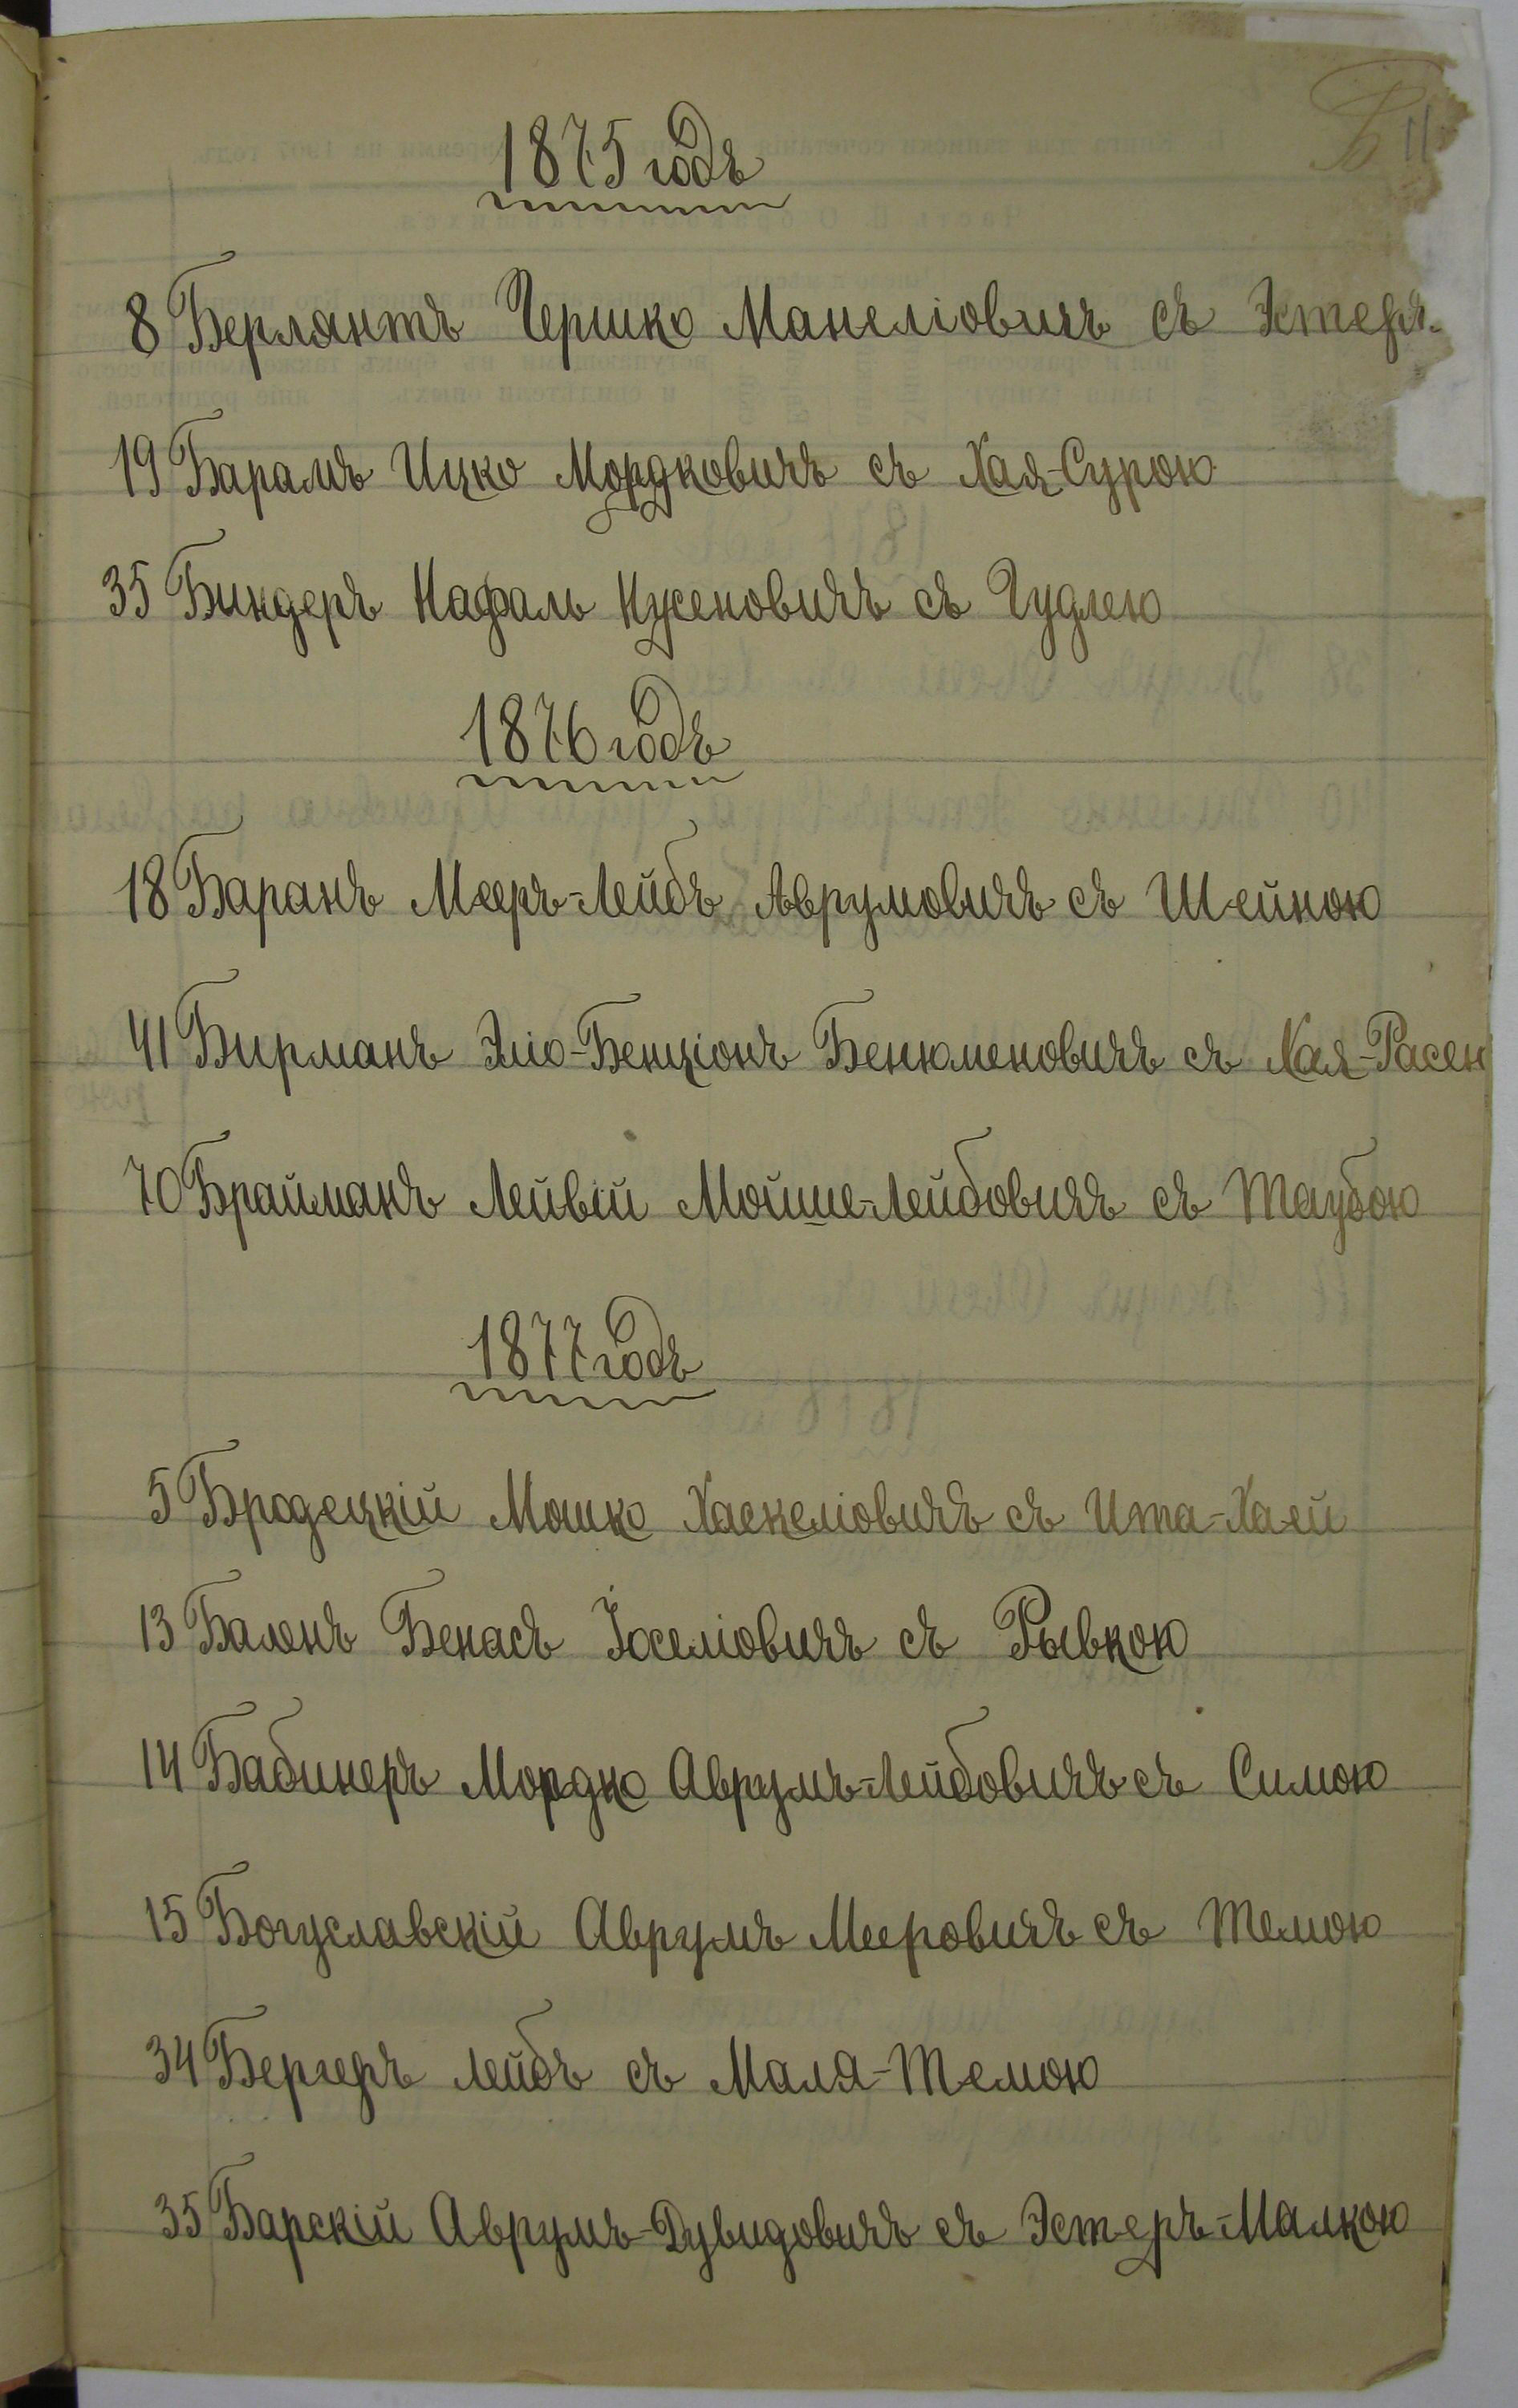 Б 11
1875 годъ
8 Берлянтъ Гершко Манеліовичъ съ Эстеръ
19 Барамъ Ицко Мордковичъ съ Хая-Сурою
35 Биндеръ Нафаль Нусеновичъ съ Гудлею
1876 годъ
18 Баранъ Мееръ-Лейбъ Аврумовичъ съ Шейною
41 Бирманъ Эліо-Бенціонъ Бенюменовичъ съ Хая-Расею
70 Брайманъ Лейвій Мойше-Лейбовичъ съ Таубою
1877 годъ
5 Бродецкій Мошко Хаскеліовичъ съ Ита-Хаей
13 Балонъ Бенасъ Іоселіовичъ съ Рывкою
14 Бабинеръ Мордко Аврумъ-Лейбовичъ съ Симою
15 Богуславскій Аврумъ Мееровичъ съ Темою
34 Бергеръ Лейбъ съ Маля-Темою
35 Барскій Аврумъ-Дувидовичъ съ Эстеръ-Малкою